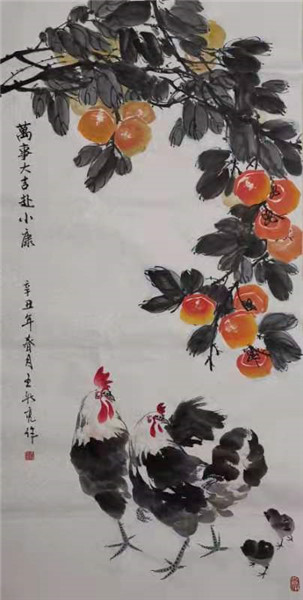 萬事大吉赴小康
辛丑年春月王亮作